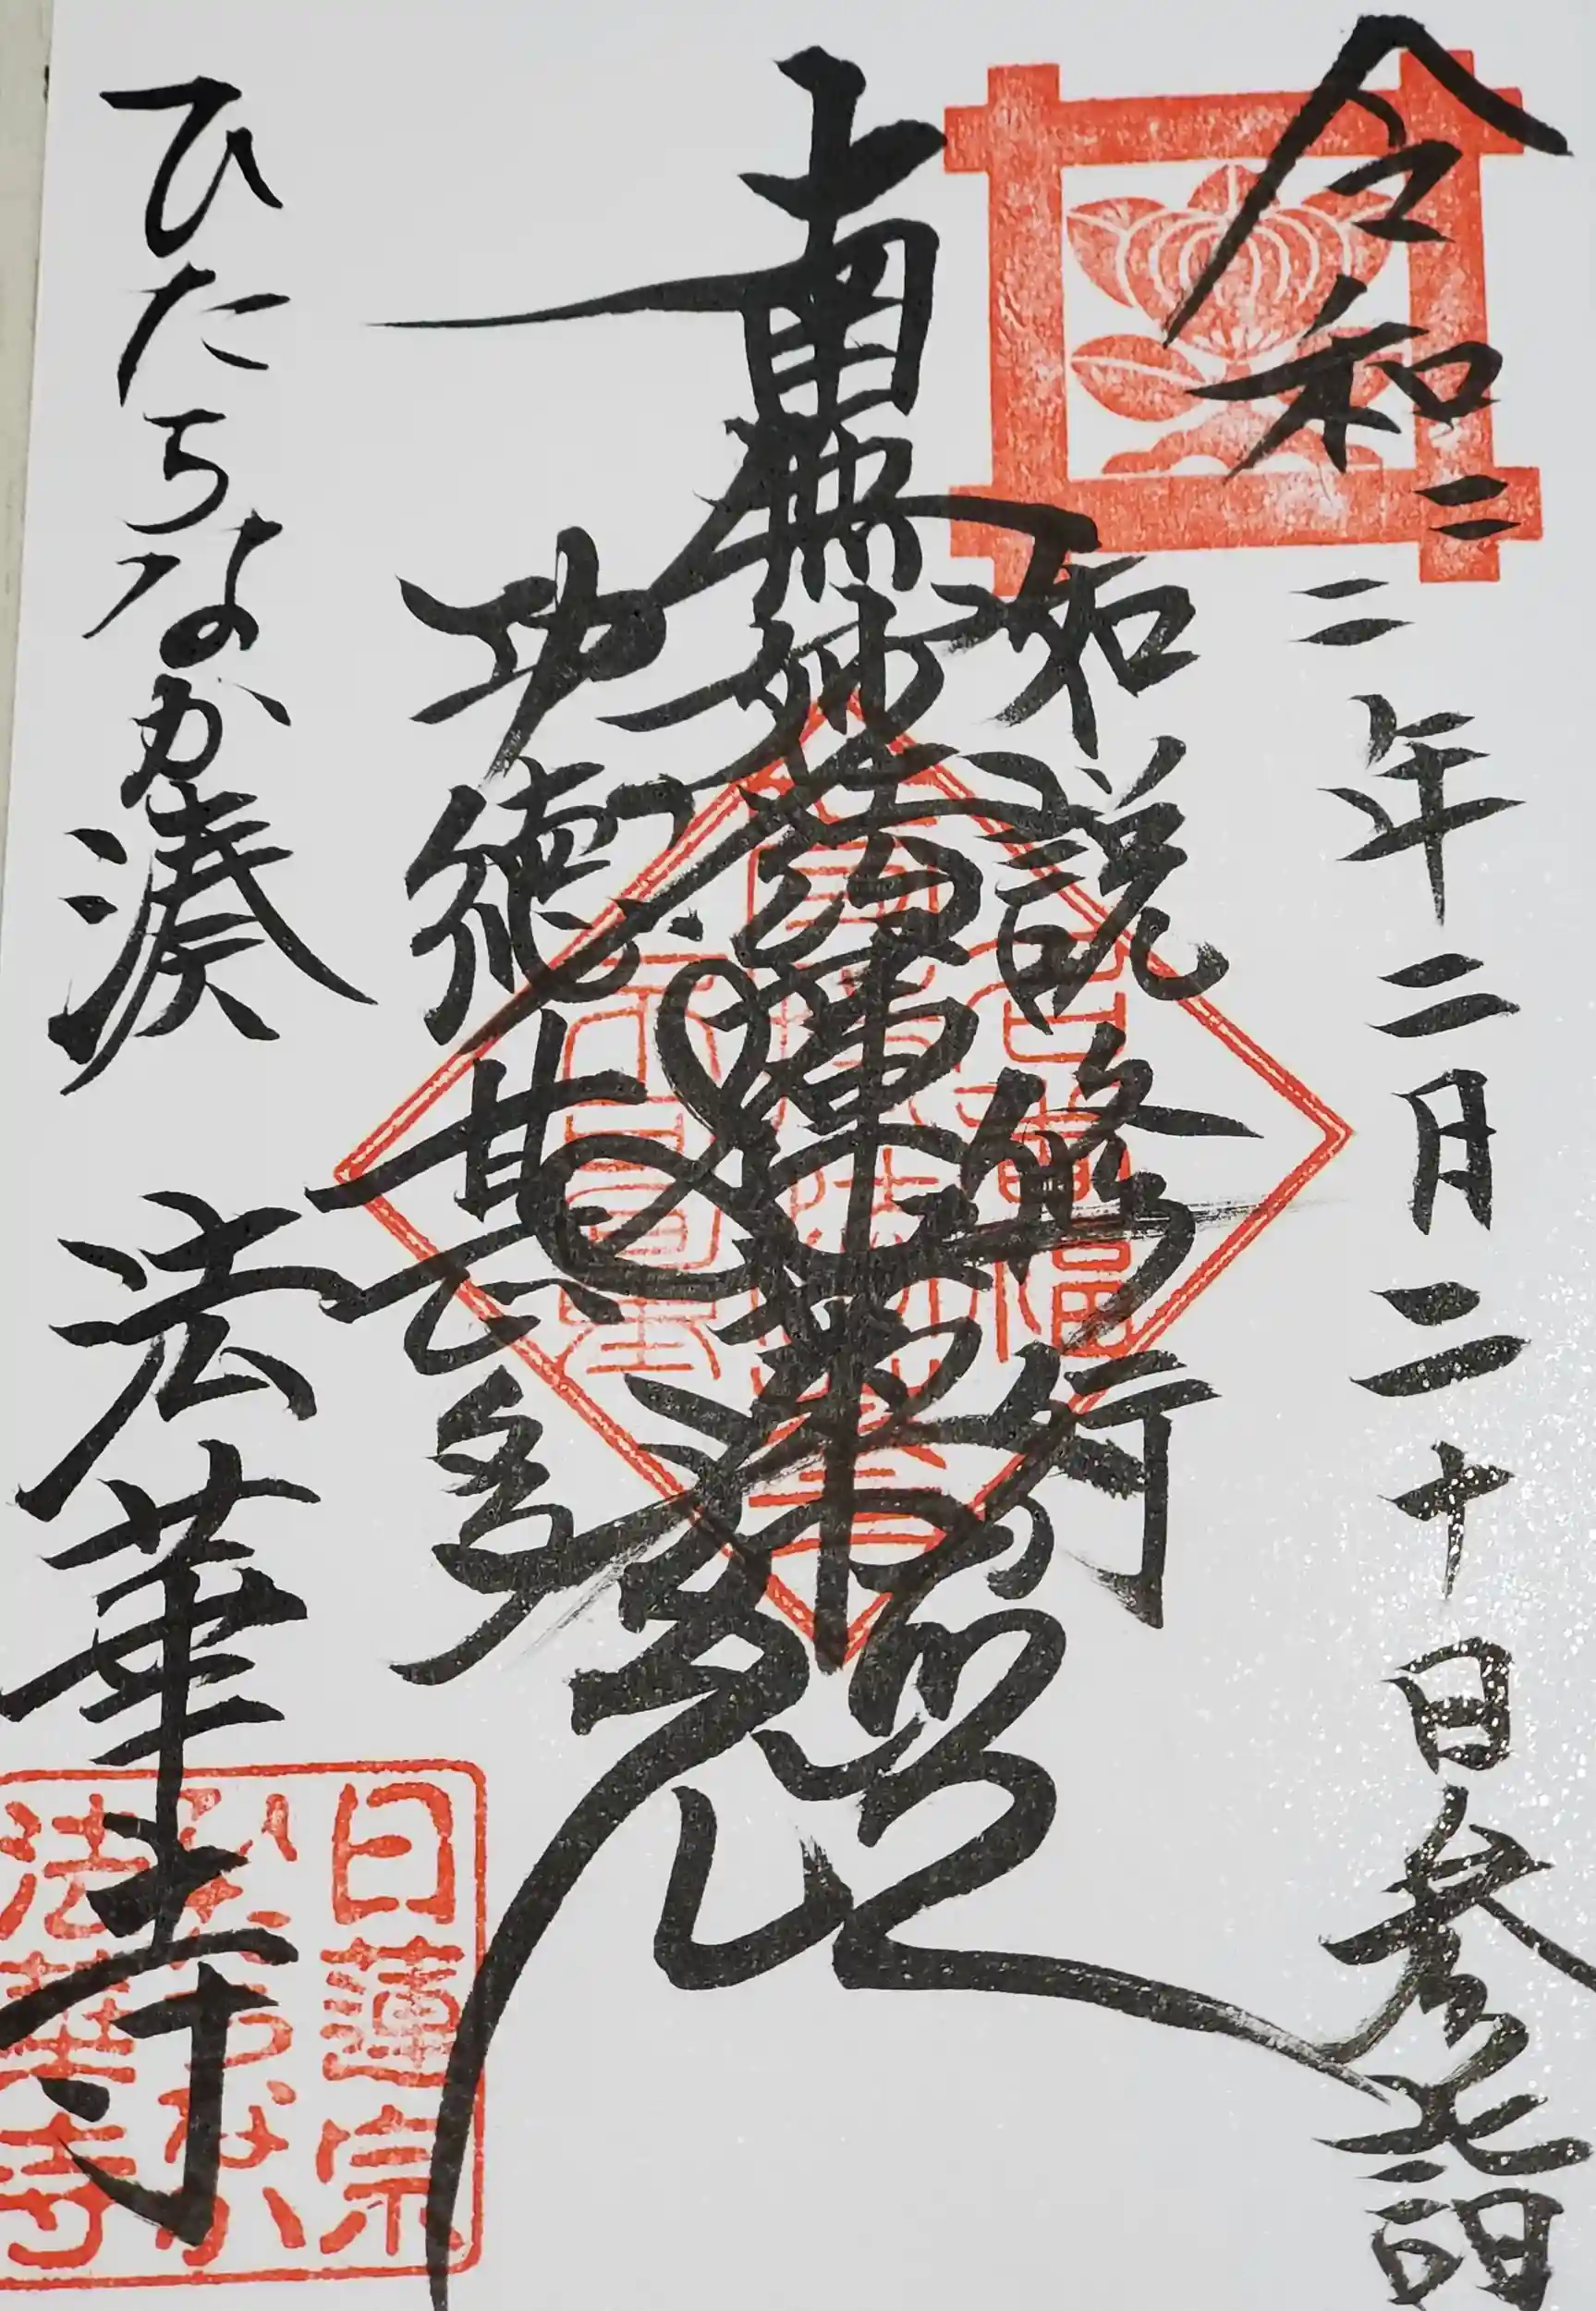 令和二二年二月二十日参詣
如説修行
南無妙法蓮華経
功徳甚多
ひたちなか湊 法華寺
日蓮宗
法華寺